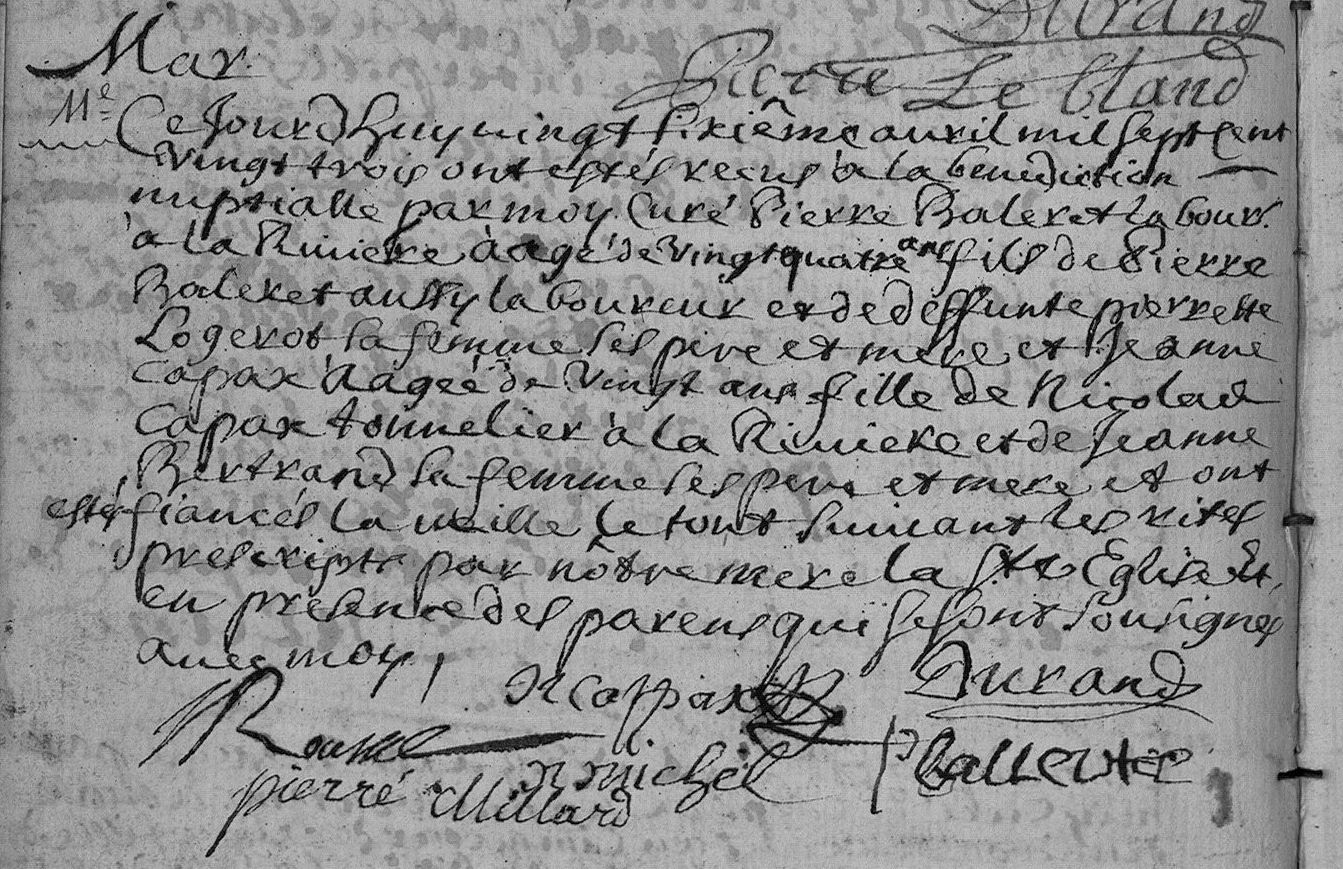 Durand
Mar
Pierre Le bland
Me
Ce Jourdhuy vingt sixiême auril mil sept cent
vingt trois ont estés recus à la benediction
nuptialle par moy Curé Pierre Baleret labour.
à la Riuiere àagé de vingt quatre ans fils de Pierre
Baleret aussy laboureur et de deffunte pierrette
Logerot sa femme ses pere et mere et Jeanne
Capax àageé de vingt ans fille de Nicolas
Capax tonnelier à la Riuiere et de Jeanne
Bertrand sa femme ses pere et mere et ont
estés fiancés la ueille le tout suiuant les rites
prescripts par nôtre mere la Ste Eglise Et
en presence des parens qui se sont sousignés
auec moy,
N Cappax Durand
Rousel
N michel P Balleret
pierré Millard